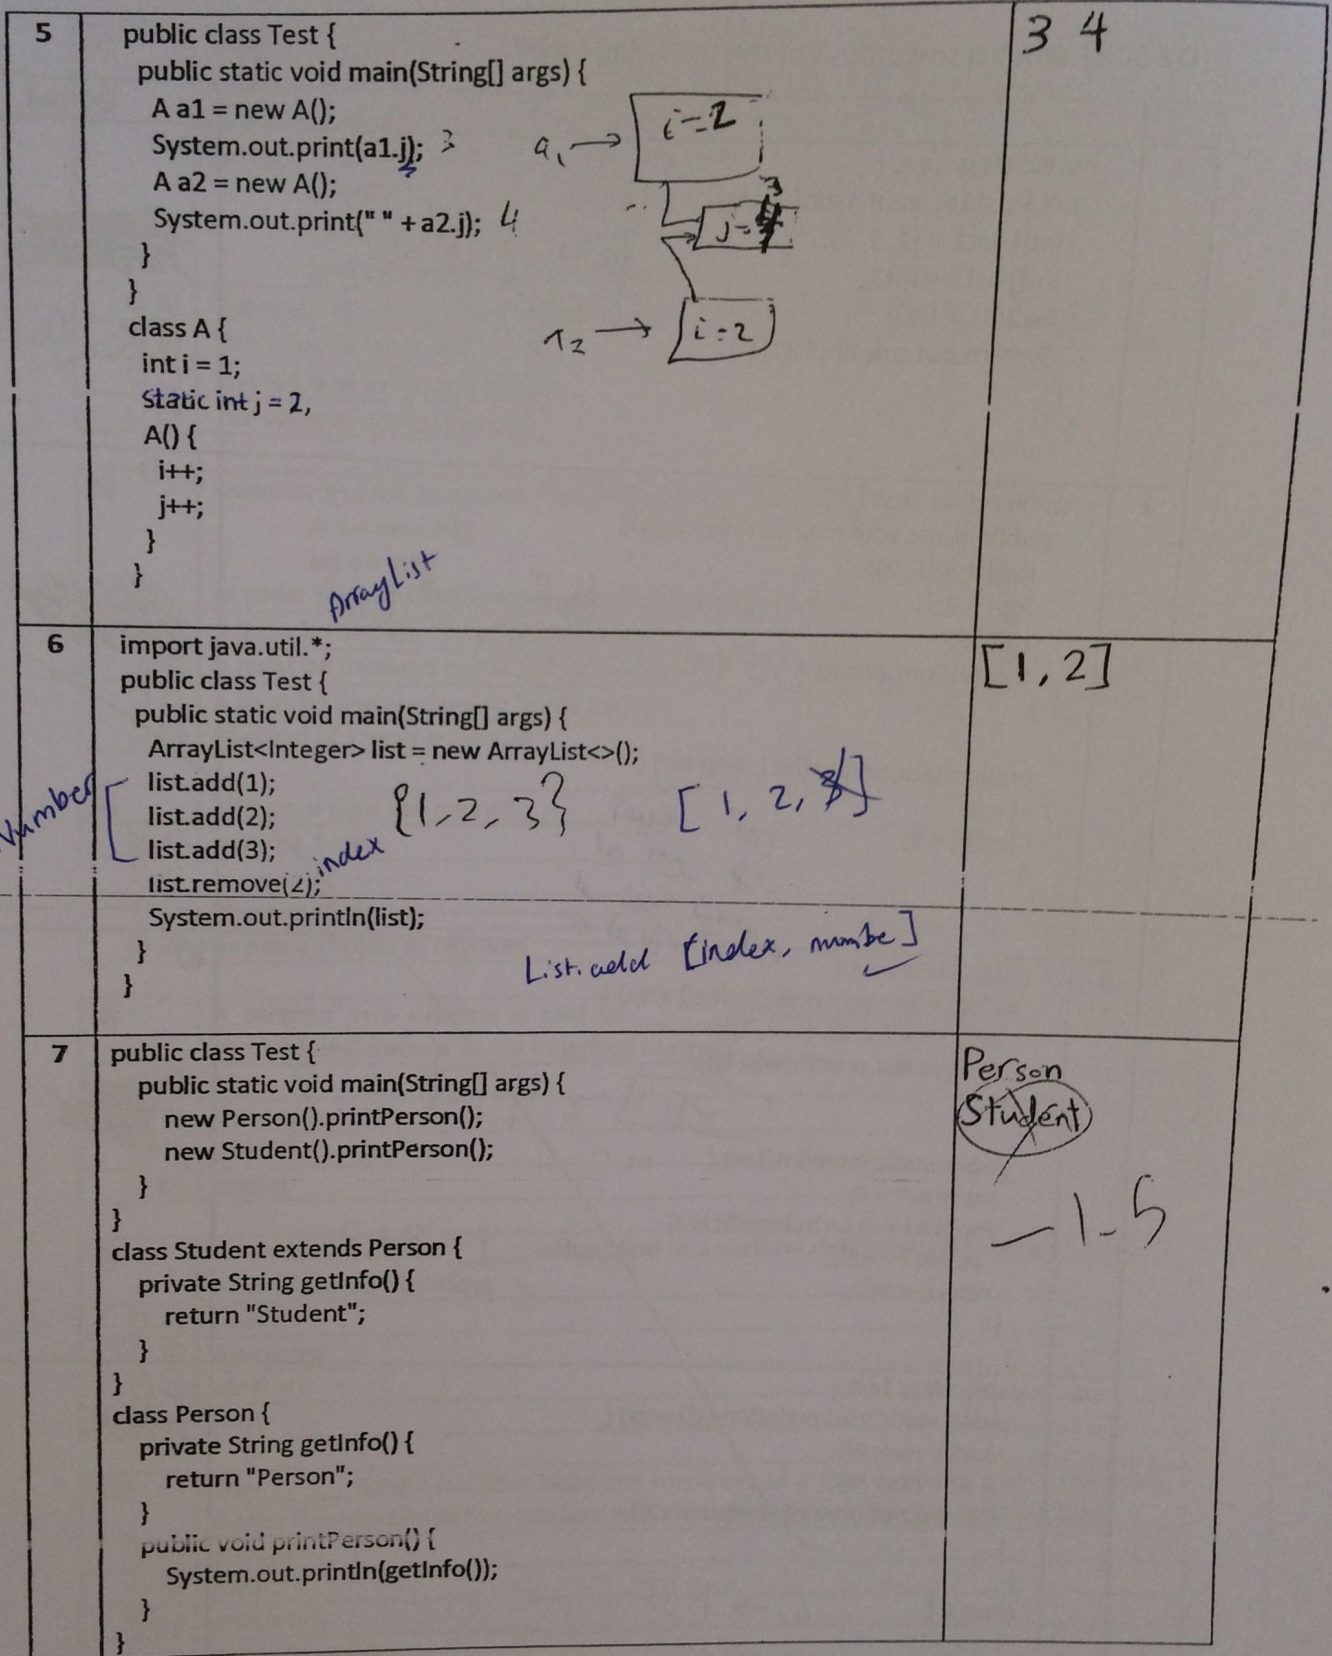 5
public class Test {
public static void main(String[] args) {
A a1 = new A();
System.out.print(a1.j); 3
A a2 = new A();
System.out.print(" " + a2.j); 4
}
}
class A {
int i = 1;
static int j = 2,
A() {
i++;
j++;
}
}
a1 → i=2
3
j=
→ i=2
3 4
ArrayList
6
import java.util.*;
public class Test {
public static void main(String[] args) {
ArrayList<Integer> list = new ArrayList<>();
list.add(1);
list.add(2);
list.add(3);
list.remove(2);
System.out.println(list);
}
}
Number
index
{1, 2, 3}
[1, 2, 3]
List.add [index, numbe]
[1, 2]
7
public class Test {
public static void main(String[] args) {
new Person().printPerson();
new Student().printPerson();
}
}
class Student extends Person {
private String getInfo() {
return "Student";
}
}
class Person {
private String getInfo() {
return "Person";
}
public void printPerson() {
System.out.println(getInfo());
}
}
Person
Student
-1.5